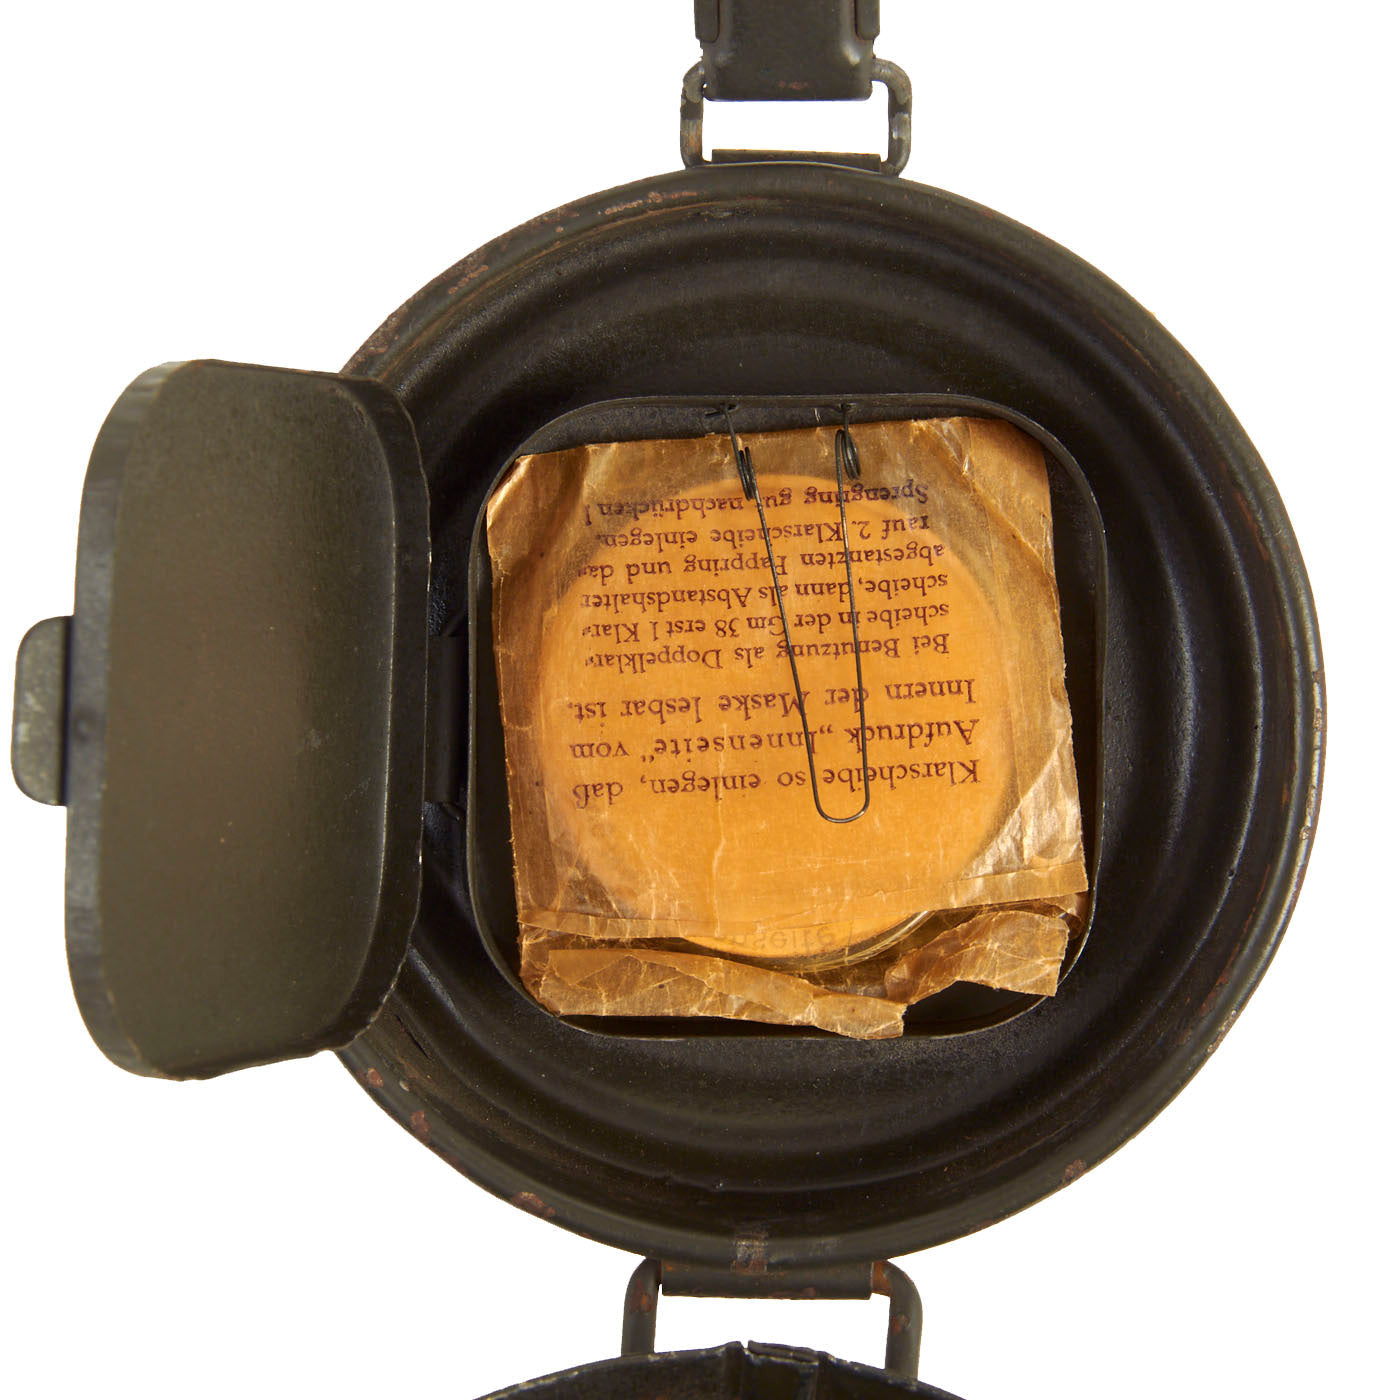 Klarscheibe so einlegen, daß
Aufdruck „Innenseite" vom
Innern der Maske lesbar ist.
Bei Benutzung als Doppelklar-
scheibe in der Gm 38 erst 1 Klar-
scheibe, dann als Abstandshalter
abgestanzten Pappring und da-
rauf 2. Klarscheibe einlegen.
Sprengring gut nachdrücken!